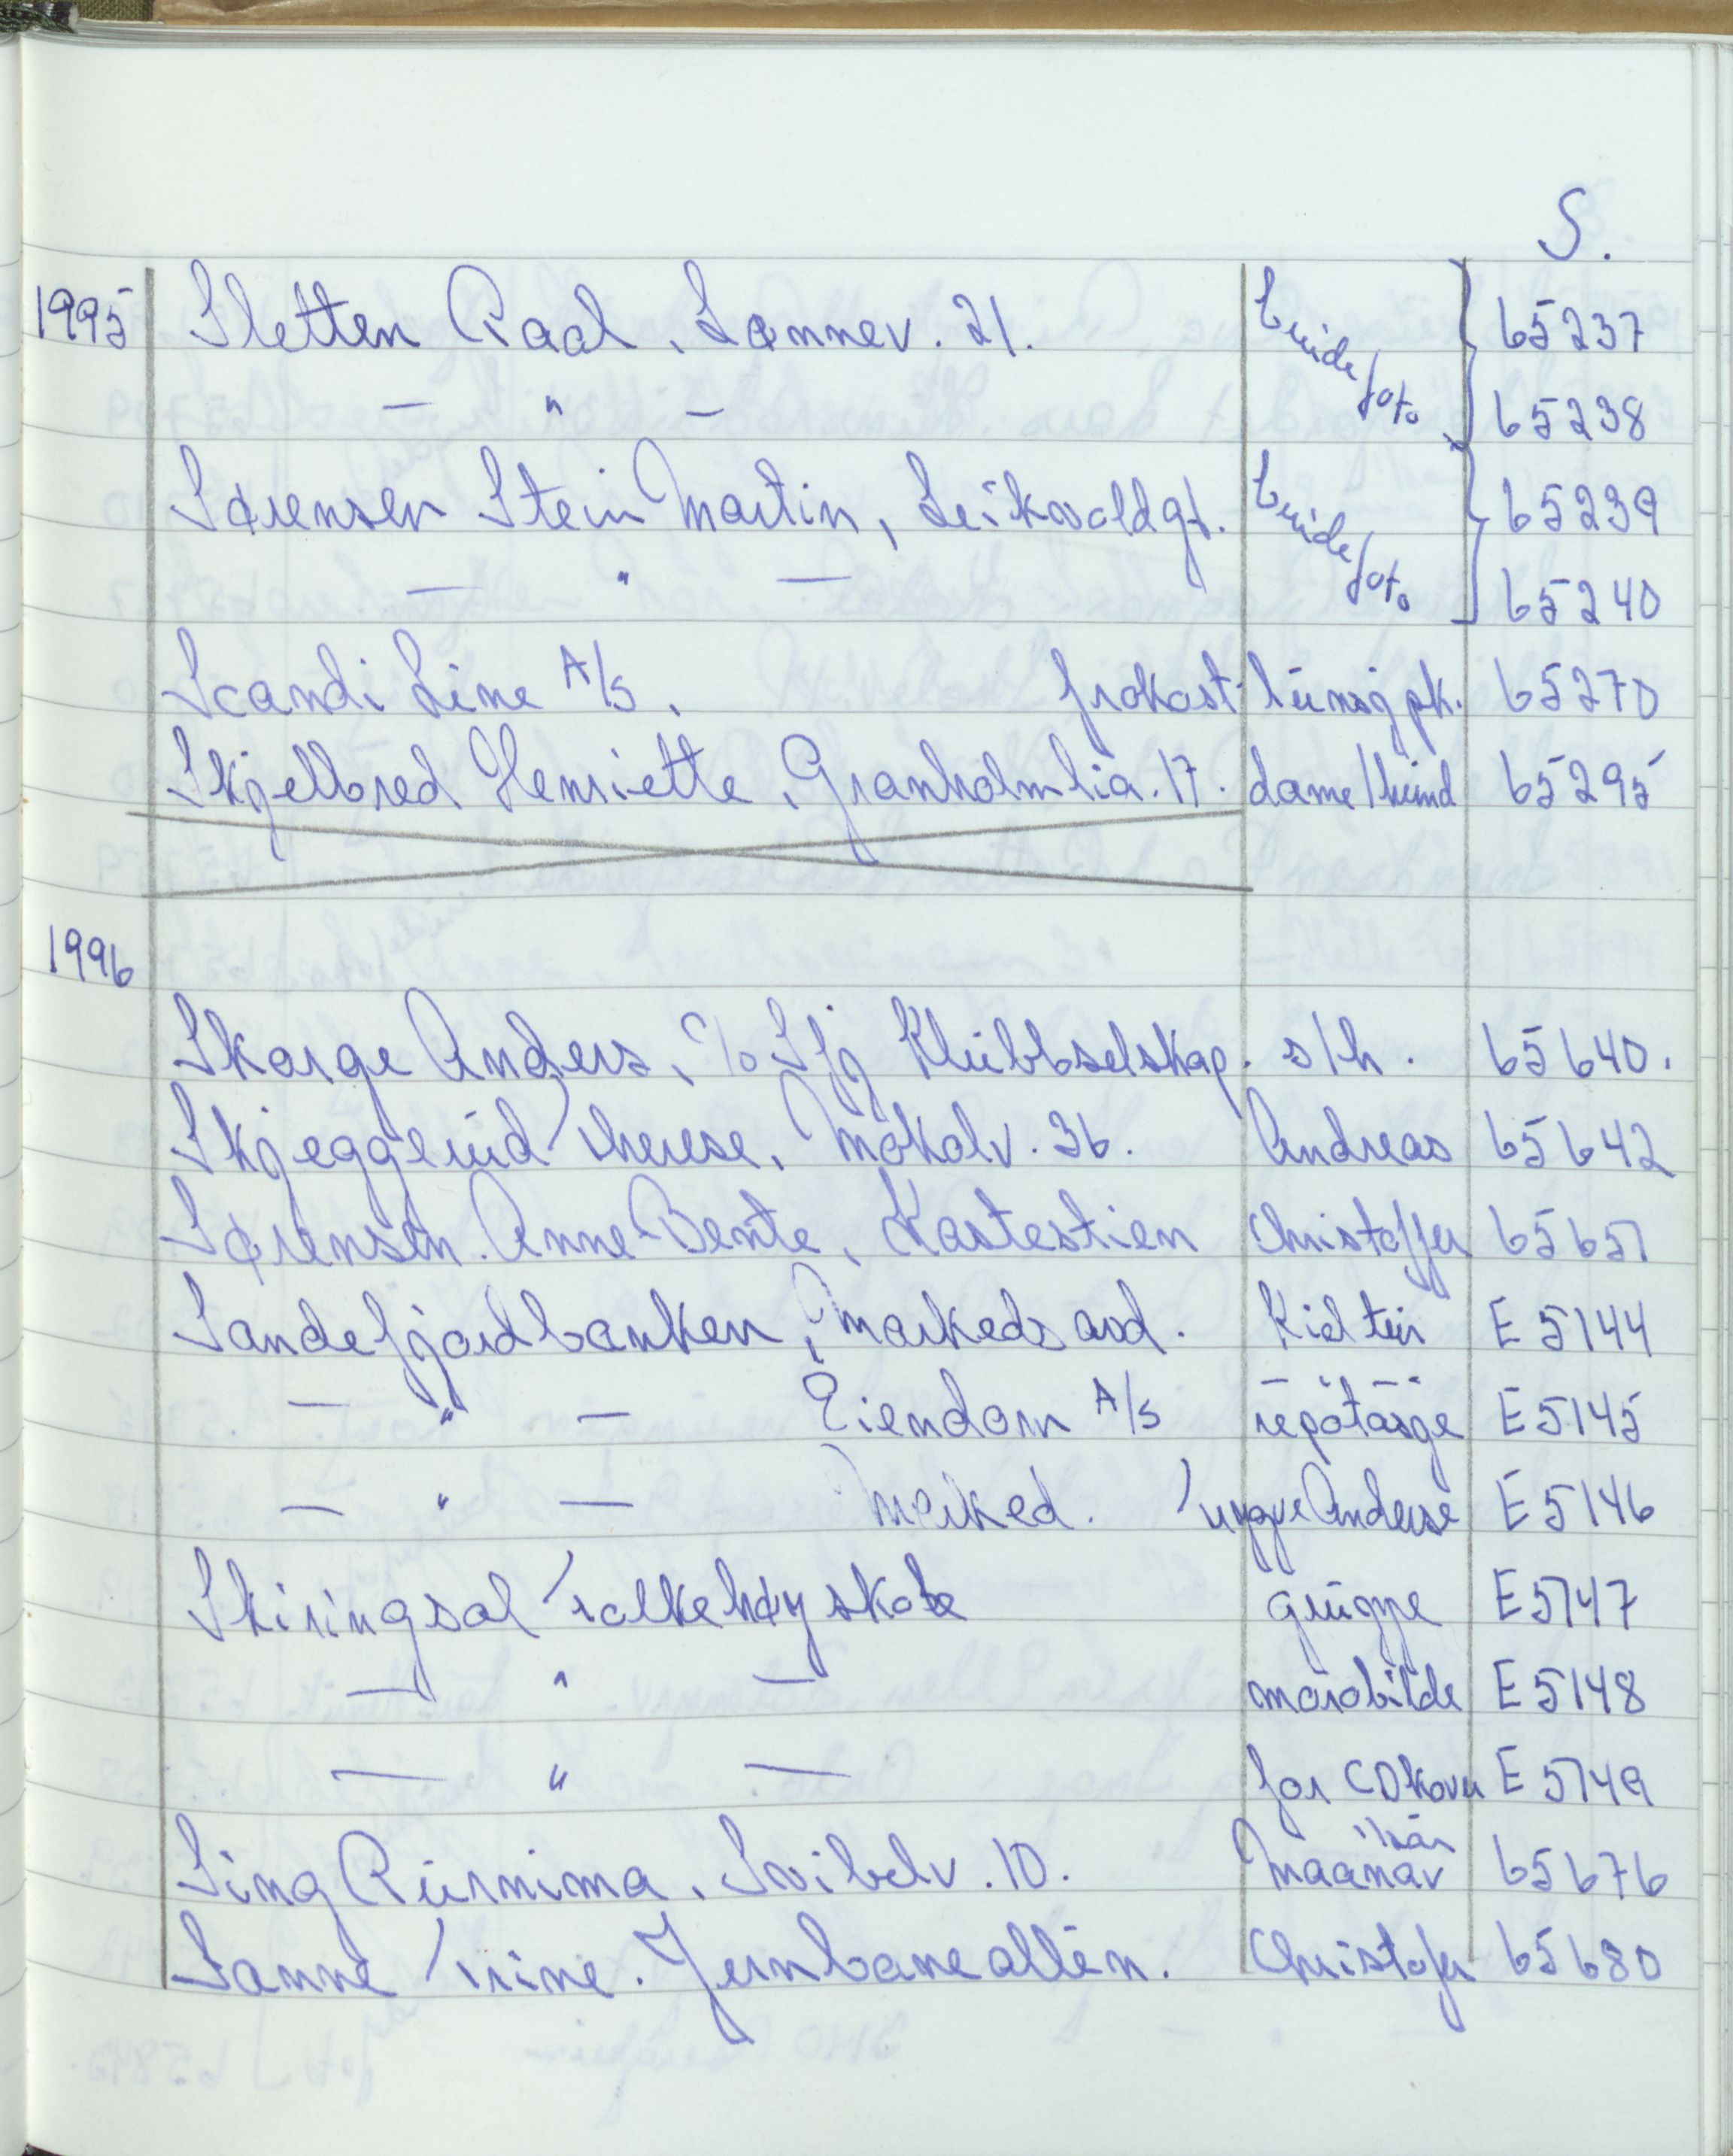 S.
1995 Sletten Roal, Lønnev. 21. brudefoto 65237
— " — 65238
Sørensen Stein Martin, Leikvollgt. brudefoto 65239
— " — 65240
Scandi Line A/S. frokost-lunsjpk. 65270
Skjelbred Henriette, Granholmlia. 17. dame/hund 65295
1996
Skarge Anders, c/o Sfj Klubbselskap. s/h. 65640.
Skjeggerud Therese, Mokolv. 36. Andreas 65642
Sørensen. Anne-Bente, Kastestien Christoffer 65651
Sandefjordbanken, Markedsavd. Kieltur E 5144
— " — Eiendom A/S repotasje E 5145
— " — Marked. Trygve Anderse E 5146
Skiringsal Folkehøyskole gruppe E 5147
— " — morobilde E 5148
— " — for CDkover E 5149
Sing Purnima, Svibelv. 10. Maanav 65676
Sanne Trine. Jernbanealléen. Christofer 65680